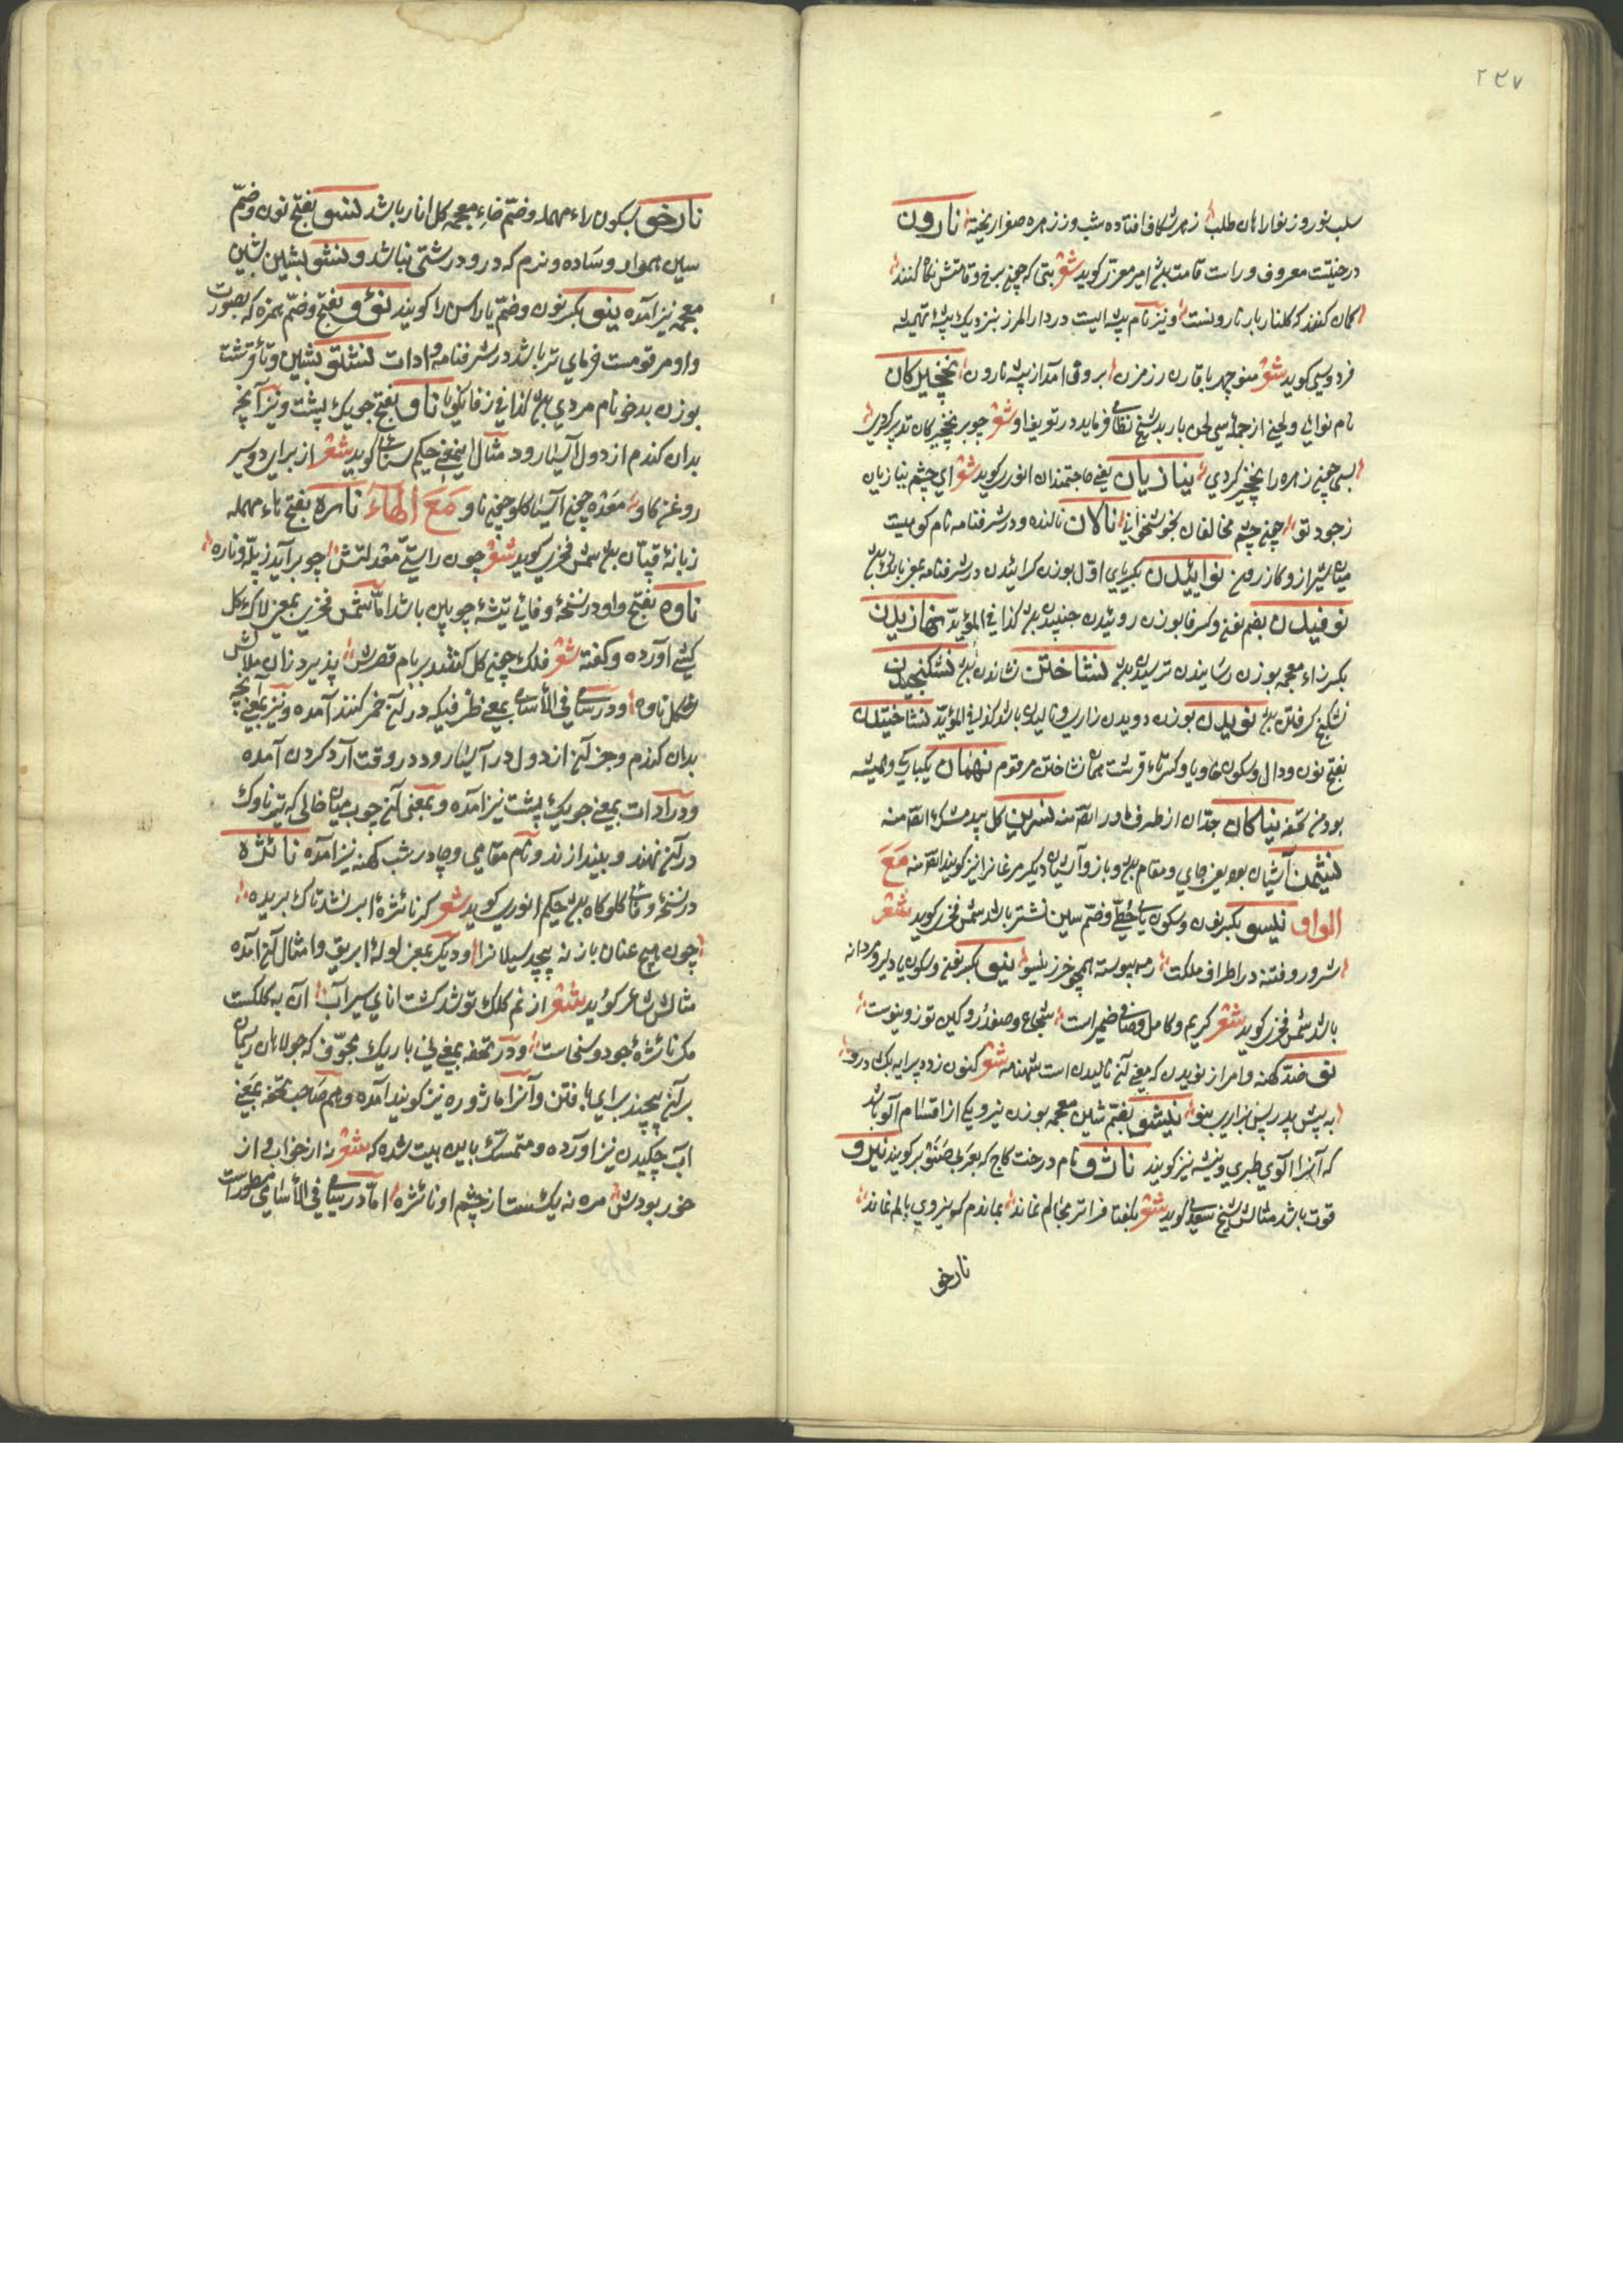 ۲۳۷
سلب نوروز نوا راهان طلب زهر شکافا فتاده شب وز زهره صفرا ریخته نارون
درختیست معروف و راست قامت بود امیر معزی کوید شعر بتی که چون برخ و قامتش نکاه کنند
کمان کنند که کلنار بار نارونست و نیز نام بیشه ایست در دار المرز بنزدیک بیشه تمیشه
فردوسی کوید شعر منوچهر با قارن رزم زن برون آمد از بیشه نارون نخچیرکان
نام نوائی ولحنی از جمله سی لحن باربد شیخ نظامی فرماید در تعریف او شعر چو بر نخچیرکان تدبیر کردی
بسی چون زهره را نخچیر کردی نیازیان یعنی حاجتمندان انوری کوید شعر ای چشم نیازیان
ز جود تو چون چشم مخالفان بخوشخوابی نالان نالنده و در شرفنامه نام کوهیست
میان شیراز و کازرون نواییدن بکسر یای اول بوزن کراییدن در شرفنامه بمعنی بانک
نوفیدن بضم نون و کسر فا بوزن روئیدن جنبیدن بود کذا فی المؤید نهازیدن
بکسر زاء معجمه بوزن رسانیدن ترسیدن بود نشاختن نشاندن بود نشکنجیدن
نشکنج کرفتن بود نویدن بوزن دویدن زاری و نالیدن باشد کذا فی المؤید نشاختیدن
بفتح نون و دال و سکون خا و یا و کسر تاء قرشت همان نشاختن مرقوم نهمان یکبارکی و همیشه
بودن تحفه نیاکان جدان از طرف مادر ایضا منه نسرین کل سپید مشک ایضا منه
نشیمن آشیان بود یعنی جای و مقام بود و باز و آشیان دیکر مرغانرا نیز کویند ایضا منه مَعَ
الواو نیسو بکسر نون و سکون یای حطی و ضم سین نشتر باشد شمس فخری کوید شعر
شرور و فتنه در اطراف ملکت زند پیوسته همچو خر ز نیسو نیو بکسر نون و سکون یا دلیر و مردانه
باشد شمس فخری کوید شعر کریم و کامل و صافی ضمیر است شجاع و صفدر و کین توز و نیوست
نو ضد کهنه و امر از نویدن که معنی آن نالیدن است شهنامه شعر کنون زود پیرایه بکشا و رو
به پیش پدر پس بزاری بنو نیشو بضم شین معجمه بوزن نیرو یکی از اقسام آلو باشد
که آنرا الوی طبری و نیشه نیز کویند ناژو نام درخت کاج که بعربی صنوبر کویند نیرو
قوت باشد مثالش شیخ سعدی کوید شعر بکفتا فراتر مجالم نماند بماندم که نیروی بالم نماند
نارخو
نارخو بسکون راء مهمله و ضم خاء معجمه کل انار باشد نسو بفتح نون و ضم
سین هموار و ساده و نرم که در و درشتی نباشد و نشو بشین شین
معجمه نیز آمده ینو بکسر نون و ضم یا راسن را کویند نؤو بفتح و ضم همزه که بصورت
واو مرقومست فرمای تر باشد در شرفنامه و ادات نشتو بشین و تاء قرشت
بوزن بدخو نام مردی بود کذا فی زفانکویا ناو بفتح جویک پشت و نیز آنچه
بدان کندم از دول آسیا رود مثال این معنی حکیم سنائی کوید شعر از برای دو سیر
روغن کاو معده چون آسیا کلو چون ناو مَعَ الهاء ناره بفتح راء مهمله
زبانهٔ قپان بود شمس فخری کوید شعر چون راستی معدلتش چو بر آید ز پله و ناره
ناوه بفتح واو در نسخهٔ وفائی تیشهٔ چوبین باشد اما شمس فخری بمعنی لاوک کل
کشی آورده و کفته شعر فلک چون کل کشد بر بام قصرش پذیرد زان هلالش
شکل ناوه و در سامی فی الأسامی بمعنی ظرفیکه در آن خمر کنند آمده و نیز بمعنی آنچه
بدان کندم و جز آن از دول در آسیا رود در وقت آرد کردن آمده
و در ادات بمعنی جویک پشت نیز آمده و بمعنی آن چوب میان خالی که تیر ناوک
در آن نهند و بیندازند و نام مقامی و چادر شب کهنه نیز آمده نائژه
در نسخهٔ وفائی کلوکاه بود حکیم انوری کوید شعر کر نائژهٔ ابر نشد تاک بریده
چون هیچ عنان باز نه پیچد سیلانرا و دیکر بمعنی لولهٔ ابریق و امثال آن آمده
مثالش شاعر کوید شعر از نم کلک تو شد کشت امانی سیراب آن نه کلکست
مکر نائژهٔ جود و سخاست و در تحفه بمعنی نی باریک مجوف که جولاهان ریسمان
بر آن پیچند برای بافتن و آنرا ماژوره نیز کویند آمده و هم صاحب تحفه بمعنی
آب چکیدن نیز اورده و متمسک باین بیت شده که شعر نه از خواب و از
خور بودش مزه نه یک ست از چشم او نائژه اما در سامی فی الأسامی مسطور است